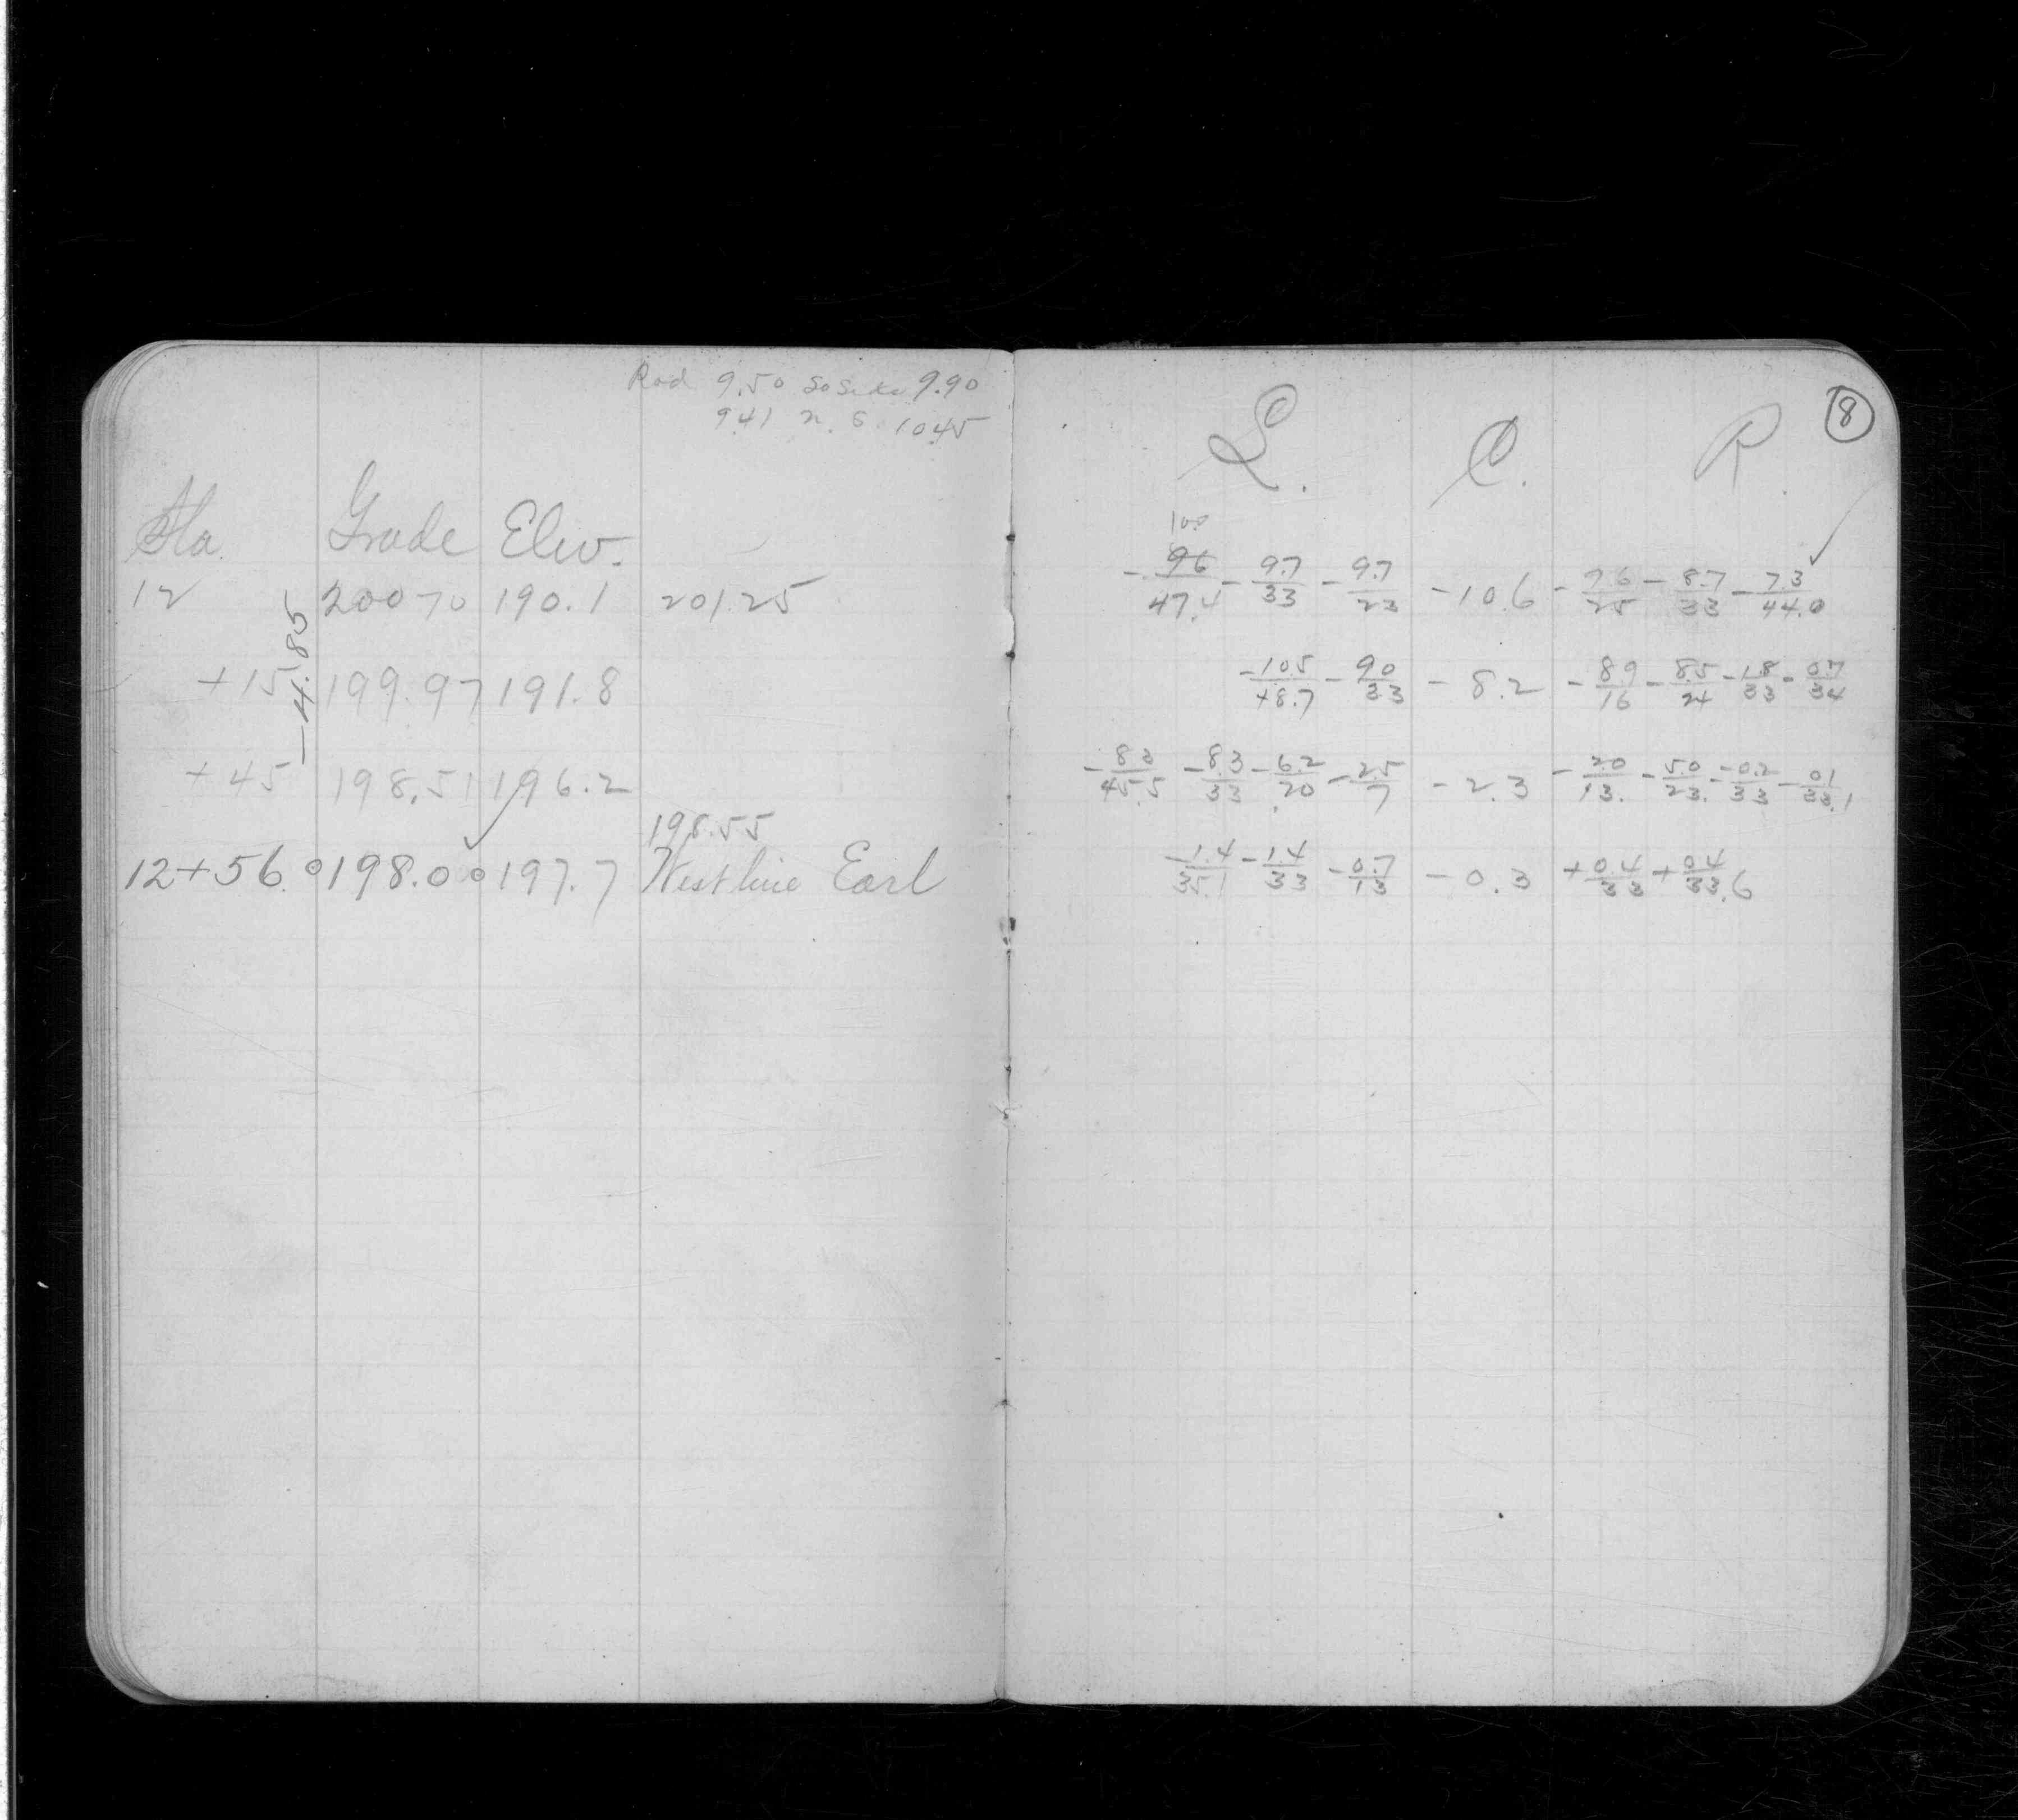 Rod 9.50 So Side 9.90
9.41 N. S. 10.45
Sta. Grade Elev.
12 200 70 190.1 201.25
-4.85
+15 199.97 191.8
+45 198.51 196.2
198.55
12+56.0 198.00 197.7 West line Earl
8
L. C. R.
10.0
-96/47.4 -9.7/33 -9.7/23 -10.6 -7.6/25 -8.7/33 -7.3/44.0
-10.5/48.7 -9.0/33 -8.2 -8.9/16 -8.5/24 -1.8/33 -0.7/34
-8.3/33 -6.2/20 -2.5/7 -2.3 -2.0/13. -5.0/23. -0.2/33 -0.1/33.1
-1.4/35.1 -1.4/33 -0.7/13 -0.3 +0.4/33 +0.4/33.6